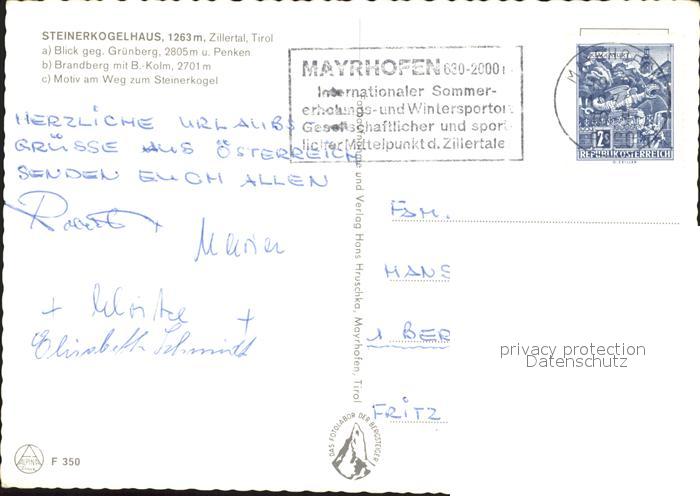 STEINERKOGELHAUS, 1263 m, Zillertal, Tirol
a) Blick geg. Grünberg, 2805 m u. Penken
b) Brandberg mit B.-Kolm, 2701 m
c) Motiv am Weg zum Steinerkogel
MAYRHOFEN 630-2000
Internationaler Sommer-
erholungs- und Wintersportort
Gesellschaftlicher und sport-
licher Mittelpunkt d. Zillertales
2S
REPUBLIK ÖSTERREICH
HERZLICHE URLAUBS
GRÜSSE AUS ÖSTERREICH
SENDEN EUCH ALLEN
Maria
Elisabeth Schmidt
und Verlag Hans Hruschka, Mayrhofen, Tirol
FAM.
HANS
1 BER
FRITZ
privacy protection
Datenschutz
DAS FOTOLABOR DER BERGSTEIGER
ALPINA
F 350